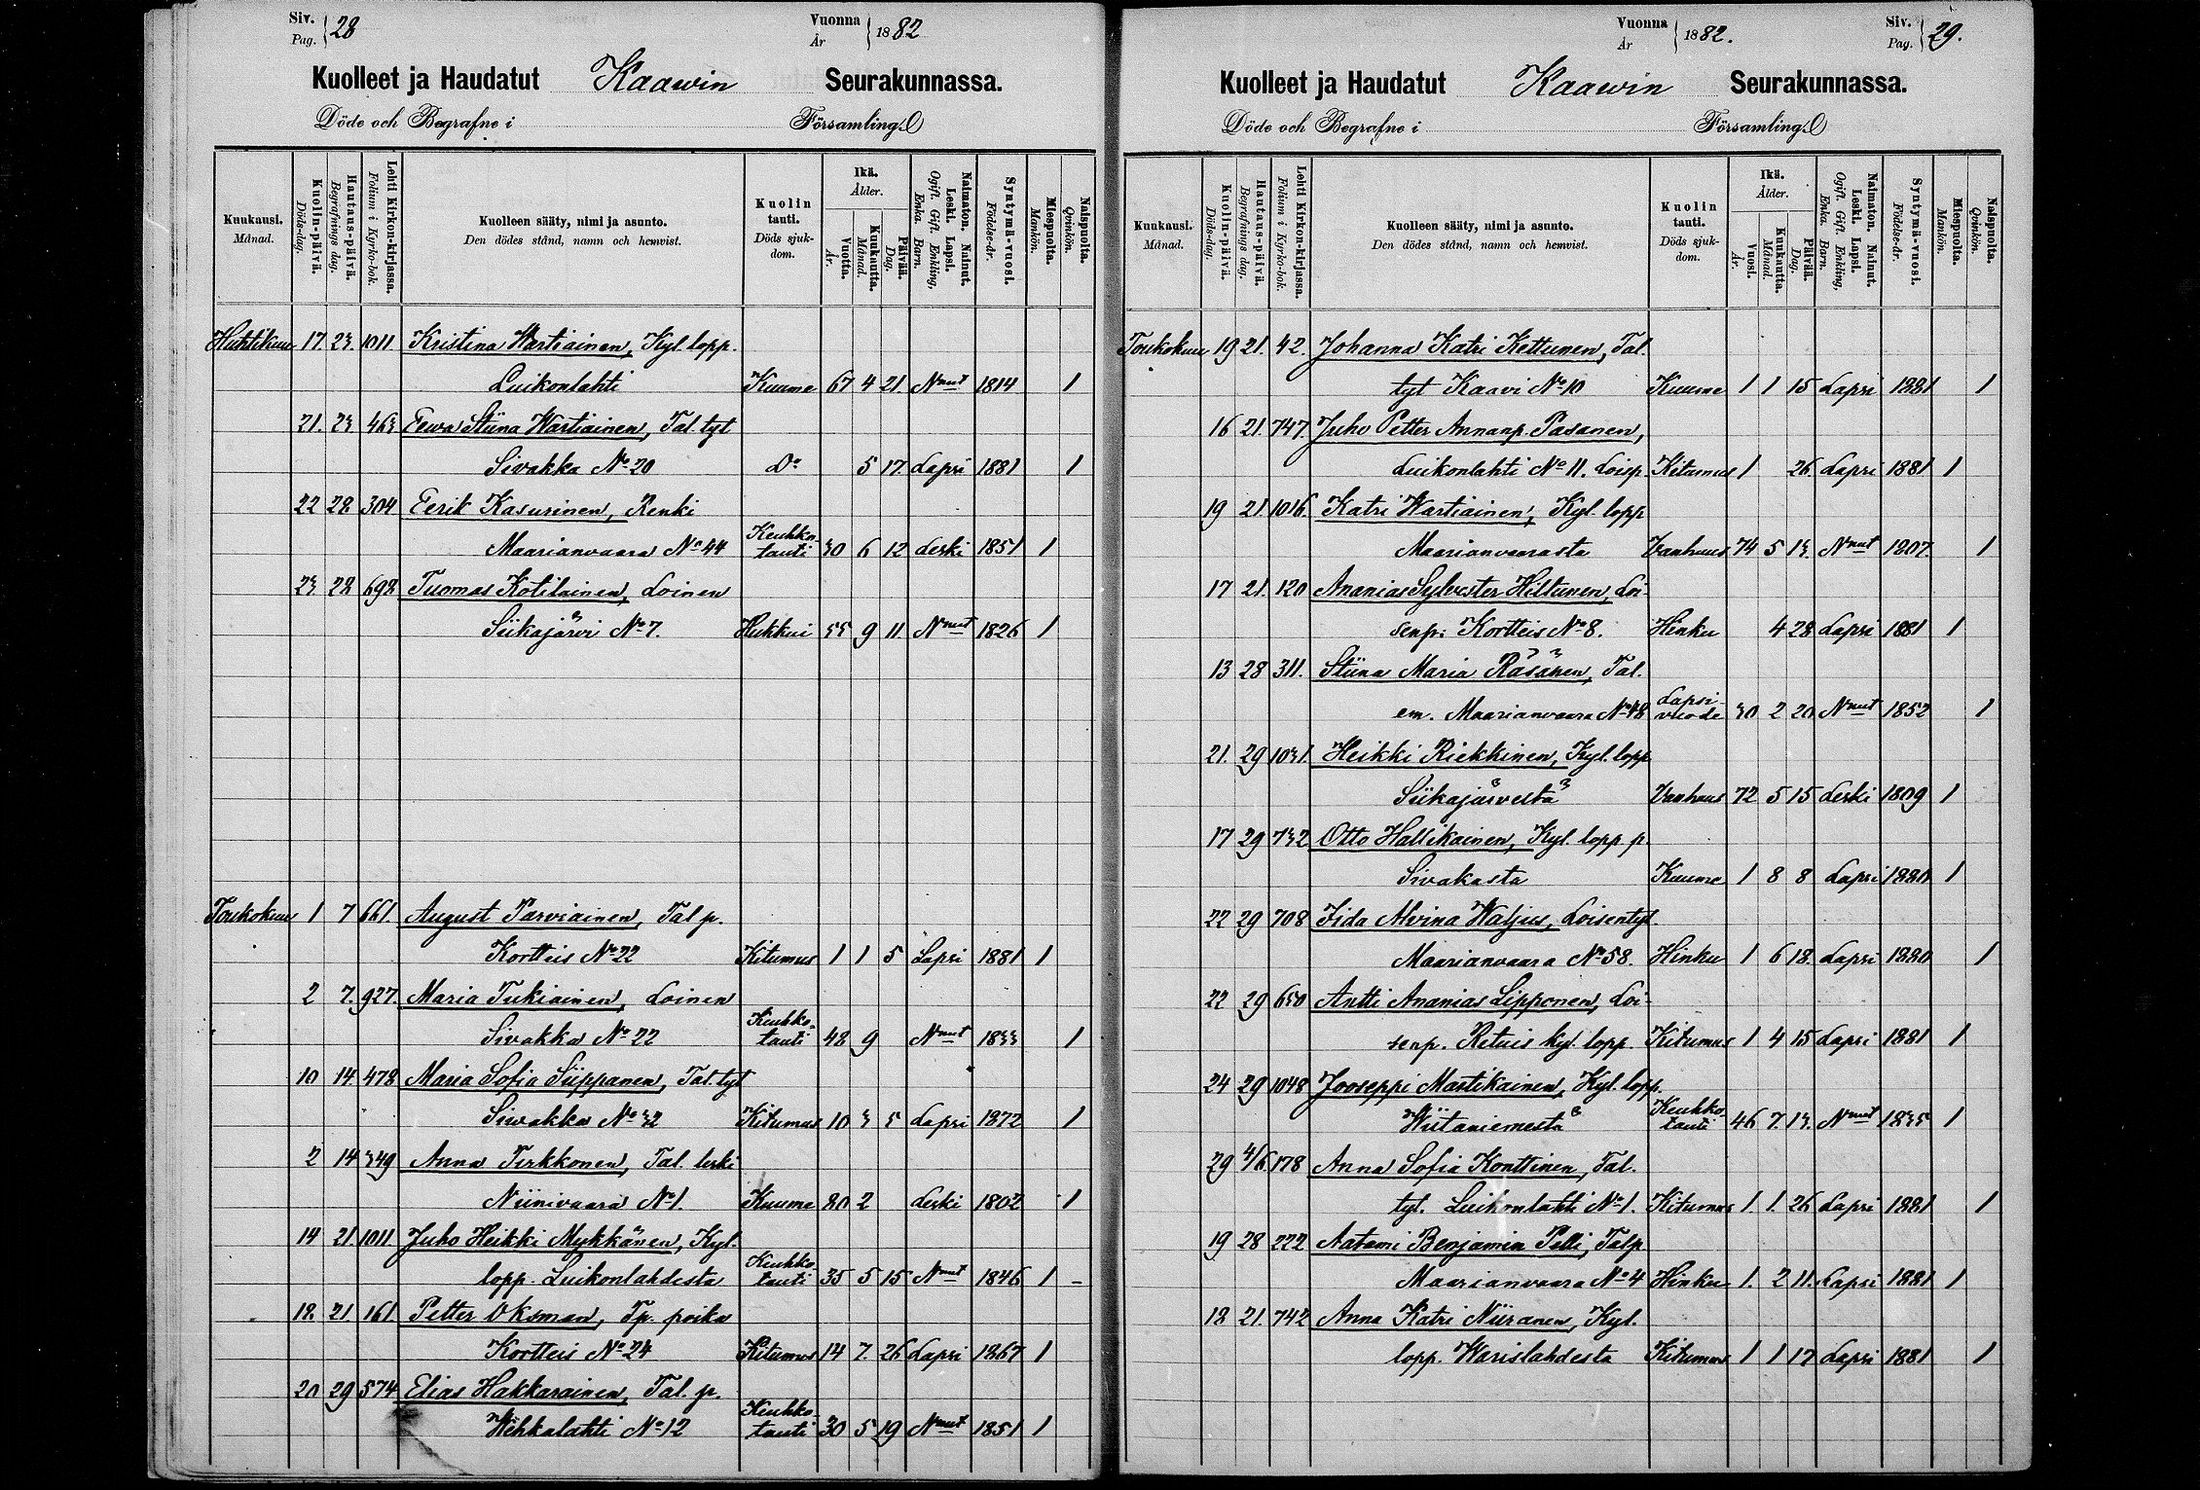 Siv. Pag. 28
Vuonna År 1882
Kuolleet ja Haudatut Kaawin Seurakunnassa.
Döde och Begrafne i Församling
Kuukausi. Månad.
Kuolin-päivä. Döds-dag.
Hautaus-päivä. Begrafnings dag.
Lehti Kirkon-kirjassa. Folium i Kyrko-bok.
Kuolleen sääty, nimi ja asunto. Den dödes stånd, namn och hemvist.
Kuolin tauti. Döds sjukdom.
Ikä. Ålder.
Vuotta. År.
Kuukautta. Månad.
Päivää. Dag.
Naimaton. Nainut. Leski. Lapsi. Ogift. Gift. Enkling, Enka. Barn.
Syntymä-vuosi. Födelse-år.
Miespuolia. Mankön.
Naispuolia. Qvinkön.
Huhtikuu 17. 23. 1011 Kristina Wartiainen, Kyl. lopp.
Luikonlahti Kuume 67 4 21. Nnut 1814 1
21. 23. 463 Eewa Stiina Wartiainen, Tal. tyt
Sivakka No 20 Do 5 17. Lapsi 1881 1
22 28 304 Eerik Kasurinen, Renki
Maarianvaara No 44 Keuhko-tauti 30 6 12 Leski 1851 1
23 28 698 Tuomas Kotilainen, Loinen
Siikajärvi No 7. Hukkui 55 9 11. Nnut 1826 1
Toukokuu 1 7 661. August Parviainen, Tal p.
Kortteis No 22 Kitumus 1 1 5 Lapsi 1881 1
2 7. 927. Maria Tukiainen, Loinen
Sivakka No 22 Keuhko-tauti 48 9 Nnut 1833 1
10 14 478 Maria Sofia Siippanen, Tal. tyt
Sivakka No 32 Kitumus 10 3 5 Lapsi 1872 1
2 14 349 Anna Tirkkonen, Tal. leski
Niinivaara No 1. Kuume 80 2 Leski 1802 1
14 21. 1011 Juho Heikki Mykkänen, Kyl.
lopp. Luikonlahdesta Keuhko-tauti 35 5 15 Nnut 1846 1 -
18. 21. 161 Petter Oksman, Tp. poika
Kortteis No 24 Kitumus 14 7. 26 Lapsi 1867 1
20 29 574 Elias Hakkarainen, Tal. p.
Wehkalahti No 12 Keuhko-tauti 30 5 19 Nnut 1851 1
Vuonna År 1882.
Siv. Pag. 29.
Kuolleet ja Haudatut Kaawin Seurakunnassa.
Döde och Begrafne i Församling
Kuukausi. Månad.
Kuolin-päivä. Döds-dag.
Hautaus-päivä. Begrafnings dag.
Lehti Kirkon-kirjassa. Folium i Kyrko-bok.
Kuolleen sääty, nimi ja asunto. Den dödes stånd, namn och hemvist.
Kuolin tauti. Döds sjukdom.
Ikä. Ålder.
Vuosi. År.
Kuukautta. Månad.
Päivää. Dag.
Naimaton. Nainut. Leski. Lapsi. Ogift. Gift. Enkling, Enka. Barn.
Syntymä-vuosi. Födelse-år.
Miespuolia. Mankön.
Naispuolia. Qvinkön.
Toukokuu 19 21. 42. Johanna Katri Kettunen, Tal.
tyt Kaavi No 10 Kuume 1 1 15 Lapsi 1881 1
16 21. 747. Juho Petter Annanp. Pasanen,
Luikonlahti No 11. Loisp. Kitumus 1 26. Lapsi 1881 1
19 21. 1016. Katri Wartiainen, Kyl. lopp
Maarianvaarasta Vanhuus 74 5 13. Nnut 1807. 1
17 21. 120 Ananias Sylvester Hiltunen, Loi-
senp. Kortteis No 8. Hinku 4 28 Lapsi 1881 1
13 28 311. Stiina Maria Räsänen, Tal.
em. Maarianvaara No 48 Lapsi-vuode 30 2 20 Nnut 1852 1
21. 29 1031. Heikki Riekkinen, Kyl. lopp
Siikajärvestä Vanhuus 72 5 15 Leski 1809 1
17 29 732 Otto Hallikainen, Kyl. lopp p.
Sivakasta Kuume 1 8 8 Lapsi 1880 1
22 29 708 Iida Alvina Waljus, Loisentyt.
Maarianvaara No 58. Hinku 1 6 18. Lapsi 1880 1
22 29 650 Antti Ananias Lipponen, Loi-
senp. Retuis kyl. lopp. Kitumus 1 4 15 Lapsi 1881 1
24 29 1048 Jooseppi Martikainen, Kyl. lopp.
Wiitaniemestä Keuhko-tauti 46 7. 13. Nnut 1835 1
29 4/6 178 Anna Sofia Konttinen, Tal.
tyt. Luikonlahti No 1. Kitumus 1. 1. 26 Lapsi 1881 1
19 28 222 Aatami Benjamin Pelli, Talp
Maarianvaara No 4 Hinku 1. 2 11. Lapsi 1881 1
18 21. 742 Anna Katri Niiranen, Kyl.
lopp. Warislahdesta Kitumus 1 1 17 Lapsi 1881 1